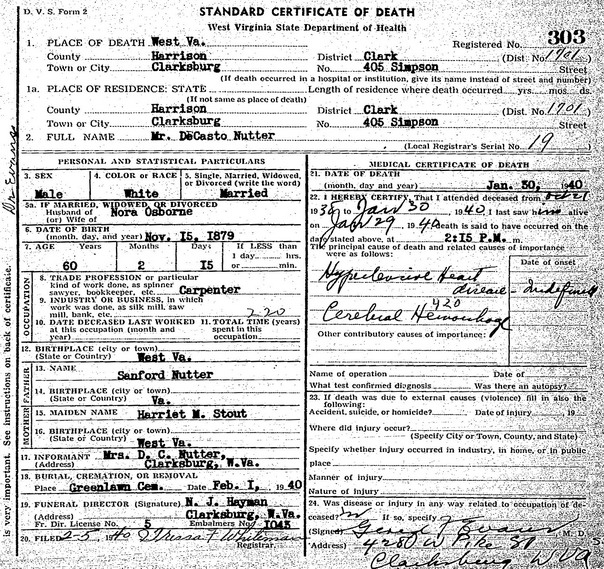 D. V. S. Form 2
STANDARD CERTIFICATE OF DEATH
West Virginia State Department of Health
303
1. PLACE OF DEATH West Va. Registered No.
County Harrison District Clark (Dist. No. 1701)
Town or City Clarksburg No. 405 Simpson Street
(If death occurred in a hospital or institution, give its name instead of street and number)
1a. PLACE OF RESIDENCE: STATE Length of residence where death occurred yrs. mos. ds.
(If not same as place of death)
County Harrison District Clark (Dist. No. 1701
Town or City Clarksburg No. 405 Simpson Street
2. FULL NAME Mr. DeCasto Nutter
(Local Registrar's Serial No. 19
PERSONAL AND STATISTICAL PARTICULARS
3. SEX 4. COLOR or RACE 5. Single, Married, Widowed, or Divorced (write the word)
Male White Married
5a. IF MARRIED, WIDOWED, OR DIVORCED
Husband of
(or) Wife of Nora Osborne
6. DATE OF BIRTH
(month, day, and year) Nov. 15, 1879
7. AGE Years Months Days If LESS than
1 day, hrs.
60 2 15 or min.
OCCUPATION
8. TRADE PROFESSION or particular
kind of work done, as spinner
sawyer, bookkeeper, etc. Carpenter
9. INDUSTRY OR BUSINESS, in which
work was done, as silk mill, saw
mill, bank, etc. 220
10. DATE DECEASED LAST WORKED 11. TOTAL TIME (years)
at this occupation (month and spent in this
year) occupation
12. BIRTHPLACE (city or town)
(State or Country) West Va.
FATHER
13. NAME
Sanford Nutter
14. BIRTHPLACE (city or town)
(State or Country) Va.
MOTHER
15. MAIDEN NAME Harriet M. Stout
16. BIRTHPLACE (city or town)
(State or Country) West Va.
17. INFORMANT Mrs. D. C. Nutter,
(Address) Clarksburg, W.Va.
18. BURIAL, CREMATION, OR REMOVAL
Place Greenlawn Cem. Date Feb. 1, 1940
19. FUNERAL DIRECTOR (Signature) N. J. Hayman
(Address) Clarksburg, W.Va.
Fr. Dir. License No. 5 Embalmers No. 1043
20. FILED 2-5, 1940
Registrar.
MEDICAL CERTIFICATE OF DEATH
21. DATE OF DEATH
(month, day and year) Jan. 30, 1940
22. I HEREBY CERTIFY, That I attended deceased from Oct 21
1938 to Jan 30, 1940, I last saw him alive
on Jan 29, 1940, death is said to have occurred on the
date stated above, at 2:15 P.M. m.
The principal cause of death and related causes of importance
were as follows:
Date of onset
Hypertensive Heart
disease - Indefinite
420
Cerebral Hemorrhage
Other contributory causes of importance:
Name of operation Date of
What test confirmed diagnosis Was there an autopsy?
23. If death was due to external causes (violence) fill in also the
following:
Accident, suicide, or homicide? Date of injury , 19
Where did injury occur?
(Specify City or Town, County, and State)
Specify whether injury occurred in industry, in home, or in public
place
Manner of injury
Nature of injury
24. Was disease or injury in any way related to occupation of de-
ceased? If so, specify
(Signed) Evans M. D.
(Address) W Pike St
Clarksburg W Va
Dr Evans
is very important. See instructions on back of certificate.